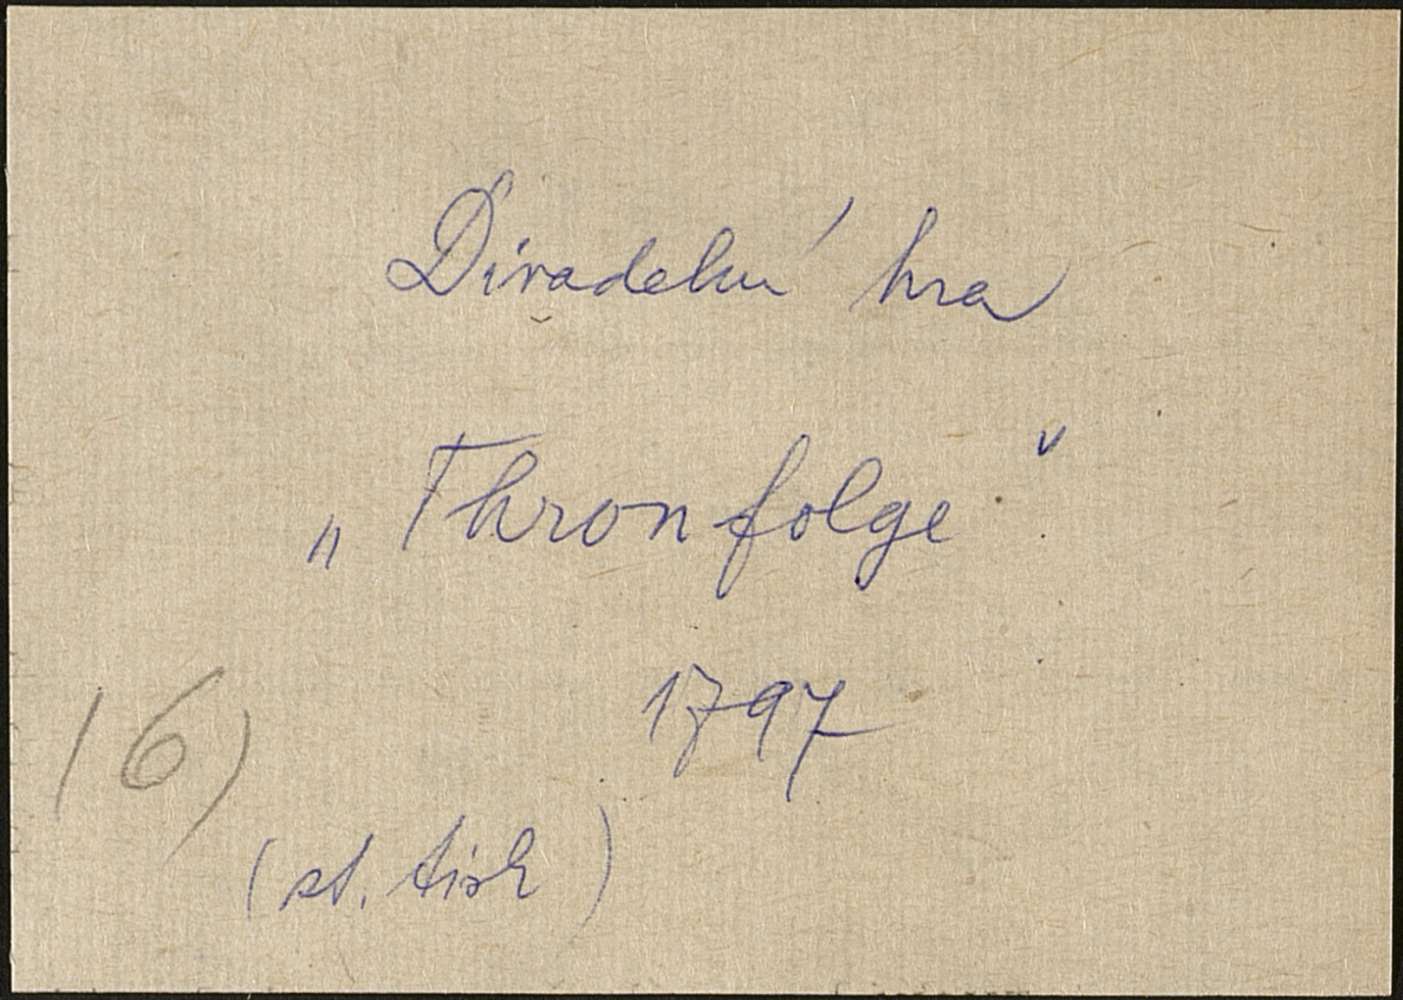 Divadelní hra
„Thronfolge"
1797
16)
(st. tisk)